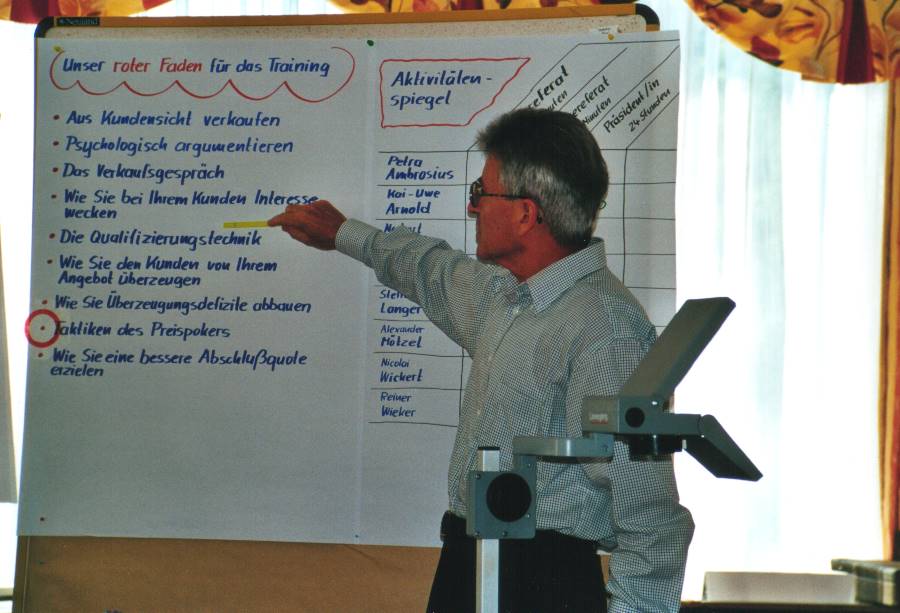 Neuland
Unser roter Faden für das Training
• Aus Kundensicht verkaufen
• Psychologisch argumentieren
• Das Verkaufsgespräch
• Wie Sie bei Ihrem Kunden Interesse
wecken
• Die Qualifizierungstechnik
• Wie Sie den Kunden von Ihrem
Angebot überzeugen
• Wie Sie Überzeugungsdefizite abbauen
• Taktiken des Preispokers
• Wie Sie eine bessere Abschlußquote
erzielen
Aktivitäten-
spiegel
Präsident/in
24 Stunden
Petra
Ambrosius
Kai-Uwe
Arnold
Langer
Alexander
Mötzel
Nicolai
Wickert
Reiner
Wieker